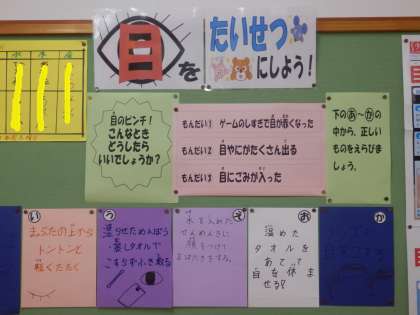 目を
たいせつ
にしよう！
目のピンチ！
こんなとき
どうしたら
いいでしょうか？
もんだい1 ゲームのしすぎで目が赤くなった
もんだい2 目やにがたくさん出る
もんだい3 目にごみが入った
下のあ～かの
中から、正しい
ものをえらびま
しょう。
い
まぶたの上から
トントンと
軽くたたく
う
湿らせためんぼう
・蒸しタオルで
こすらず小さ取る
え
水を入れた
せんめんきに
顔をつけて
まばたきをする。
お
温めた
タオルを
あてて
目を休ま
せる。
か